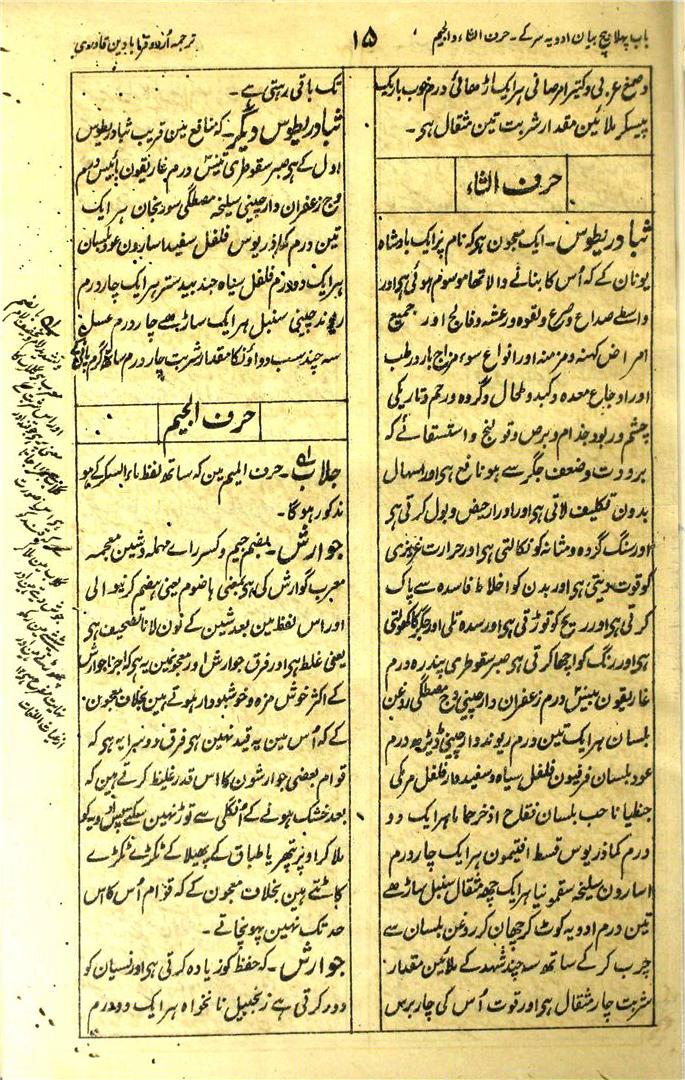 باب پہلا بیچ بیان ادویہ سرکے۔ حرف الثاء والجیم
۱۵
ترجمہ اُردو قرابادین قادری
وصمغ عربی وکتیرا مرصافی ہر ایک اڑھائی درم خوب باریک
پیسکر ملائین مقدار شربت تین مثقال ہی۔
حرف الثاء
ثبادریطوس۔ ایک معجون ہو کہ نام پر ایک بادشاہ
یونان کے کہ اُس کا بنانے والا تھا موسوم ہوئی ہی اور
واسطے صداع وصرع ولقوہ ورعشہ وفالج اور جمیع
امراض کہنہ ومزمنہ اور انواع سوء مزاج بارد رطب
اور اوجاع معدہ وکبد وطحال وگردہ ورحم وتاریکی
چشم وربو وجذام وبرص وقولنج واستسقائے کہ
برودت وضعف جگر سے ہو نافع ہی اور اسہال
بدون تکلیف لاتی ہی اور ادرار حیض وبول کرتی ہی
اور سنگ گردہ ومثانہ کو نکالتی ہی اور حرارت غریزی
کو قوت دیتی ہی اور بدن کو اخلاط فاسدہ سے پاک
کرتی ہی اور ریح کو توڑتی ہی اور سدہ تلی اور جگر کا کھولتی
ہی اور رنگ کو اچھا کرتی ہی صبر سقوطری پندرہ درم
غاریقون بیس درم زعفران دارچینی وج مصطگی روغن
بلسان ہر ایک تین درم ریوند چینی ڈیڑھ درم
عود بلسان فرفیون فلفل سیاہ وسفید دار فلفل مرمکی
جنطیانا حب بلسان فقاح اذخر حماما ہر ایک دو
درم کماذریوس قسط افتیمون ہر ایک چار درم
اسارون سلیخہ سقمونیا ہر ایک چھ مثقال سنبل ساڑھے
تین درم ادویہ کوٹ کر چھان کر روغن بلسان سے
چرب کر کے ساتھ سہ چند شہد کے ملائین مقدار
شربت چار مثقال ہی اور قوت اُس کی چار برس
تک باقی رہتی ہے۔
ثبادریطوس دیگر۔ کہ منافع مین قریب ثبادریطوس
اول کے ہی صبر سقوطری تیس درم غاریقون بائیس درم
وج زعفران دارچینی سلیخہ مصطگی سورنجان ہر ایک
تین درم کماذریوس فلفل سفید اسارون عود بلسان
ہر ایک دو درم فلفل سیاہ جند بیدستر ہر ایک چار درم
ریوند چینی سنبل ہر ایک ساڑھے چار درم عسل
سہ چند سب دواؤنکا مقدار شربت چار درم ساتھ گرم پانی کے
حرف الجیم
جلاب۔ حرف المیم مین کہ ساتھ لفظ ماء السکر کے ہو
مذکور ہو گا۔
جوارش۔ بضم جیم وکسر راے مہملہ وشین معجمہ
معرب گوارش کی ہی بمعنی ہاضوم یعنی ہضم کرنیوالی
اور اس لفظ مین بعد شین کے نون لانا تصحیف ہی
یعنی غلط ہی اور فرق جوارش اور معجون مین یہ ہی کہ اجزا جوارش
کے اکثر خوش مزہ وخوشبودار ہوتے ہین بخلاف معجون
کے کہ اُس مین یہ قید نہین ہی فرق دوسرا یہ ہی کہ
قوام بعضی جوارشون کا اس قدر غلیظ کرتے ہین کہ
بعد خشک ہونے کے اُنگلی سے توڑ نہین سکتے پس ادویہ کو
ملا کر اوپر پتھر یا طباق کے پھیلا کے ٹکڑے ٹکڑے
کاٹتے ہین بخلاف معجون کے کہ قوام اُس کا اس
حد تک نہین پہونچاتے۔
جوارش۔ کہ حفظ کو زیادہ کرتی ہی اور نسیان کو
دور کرتی ہے زنجبیل نانخواہ ہر ایک دو درم